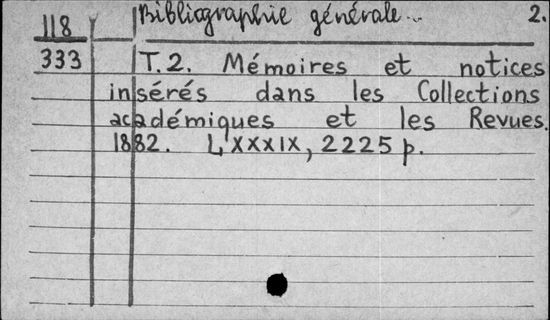 118 Bibliographie générale... 2.
333 T.2. Mémoires et notices
insérés dans les Collections
académiques et les Revues.
1882. LXXXIX, 2225 p.